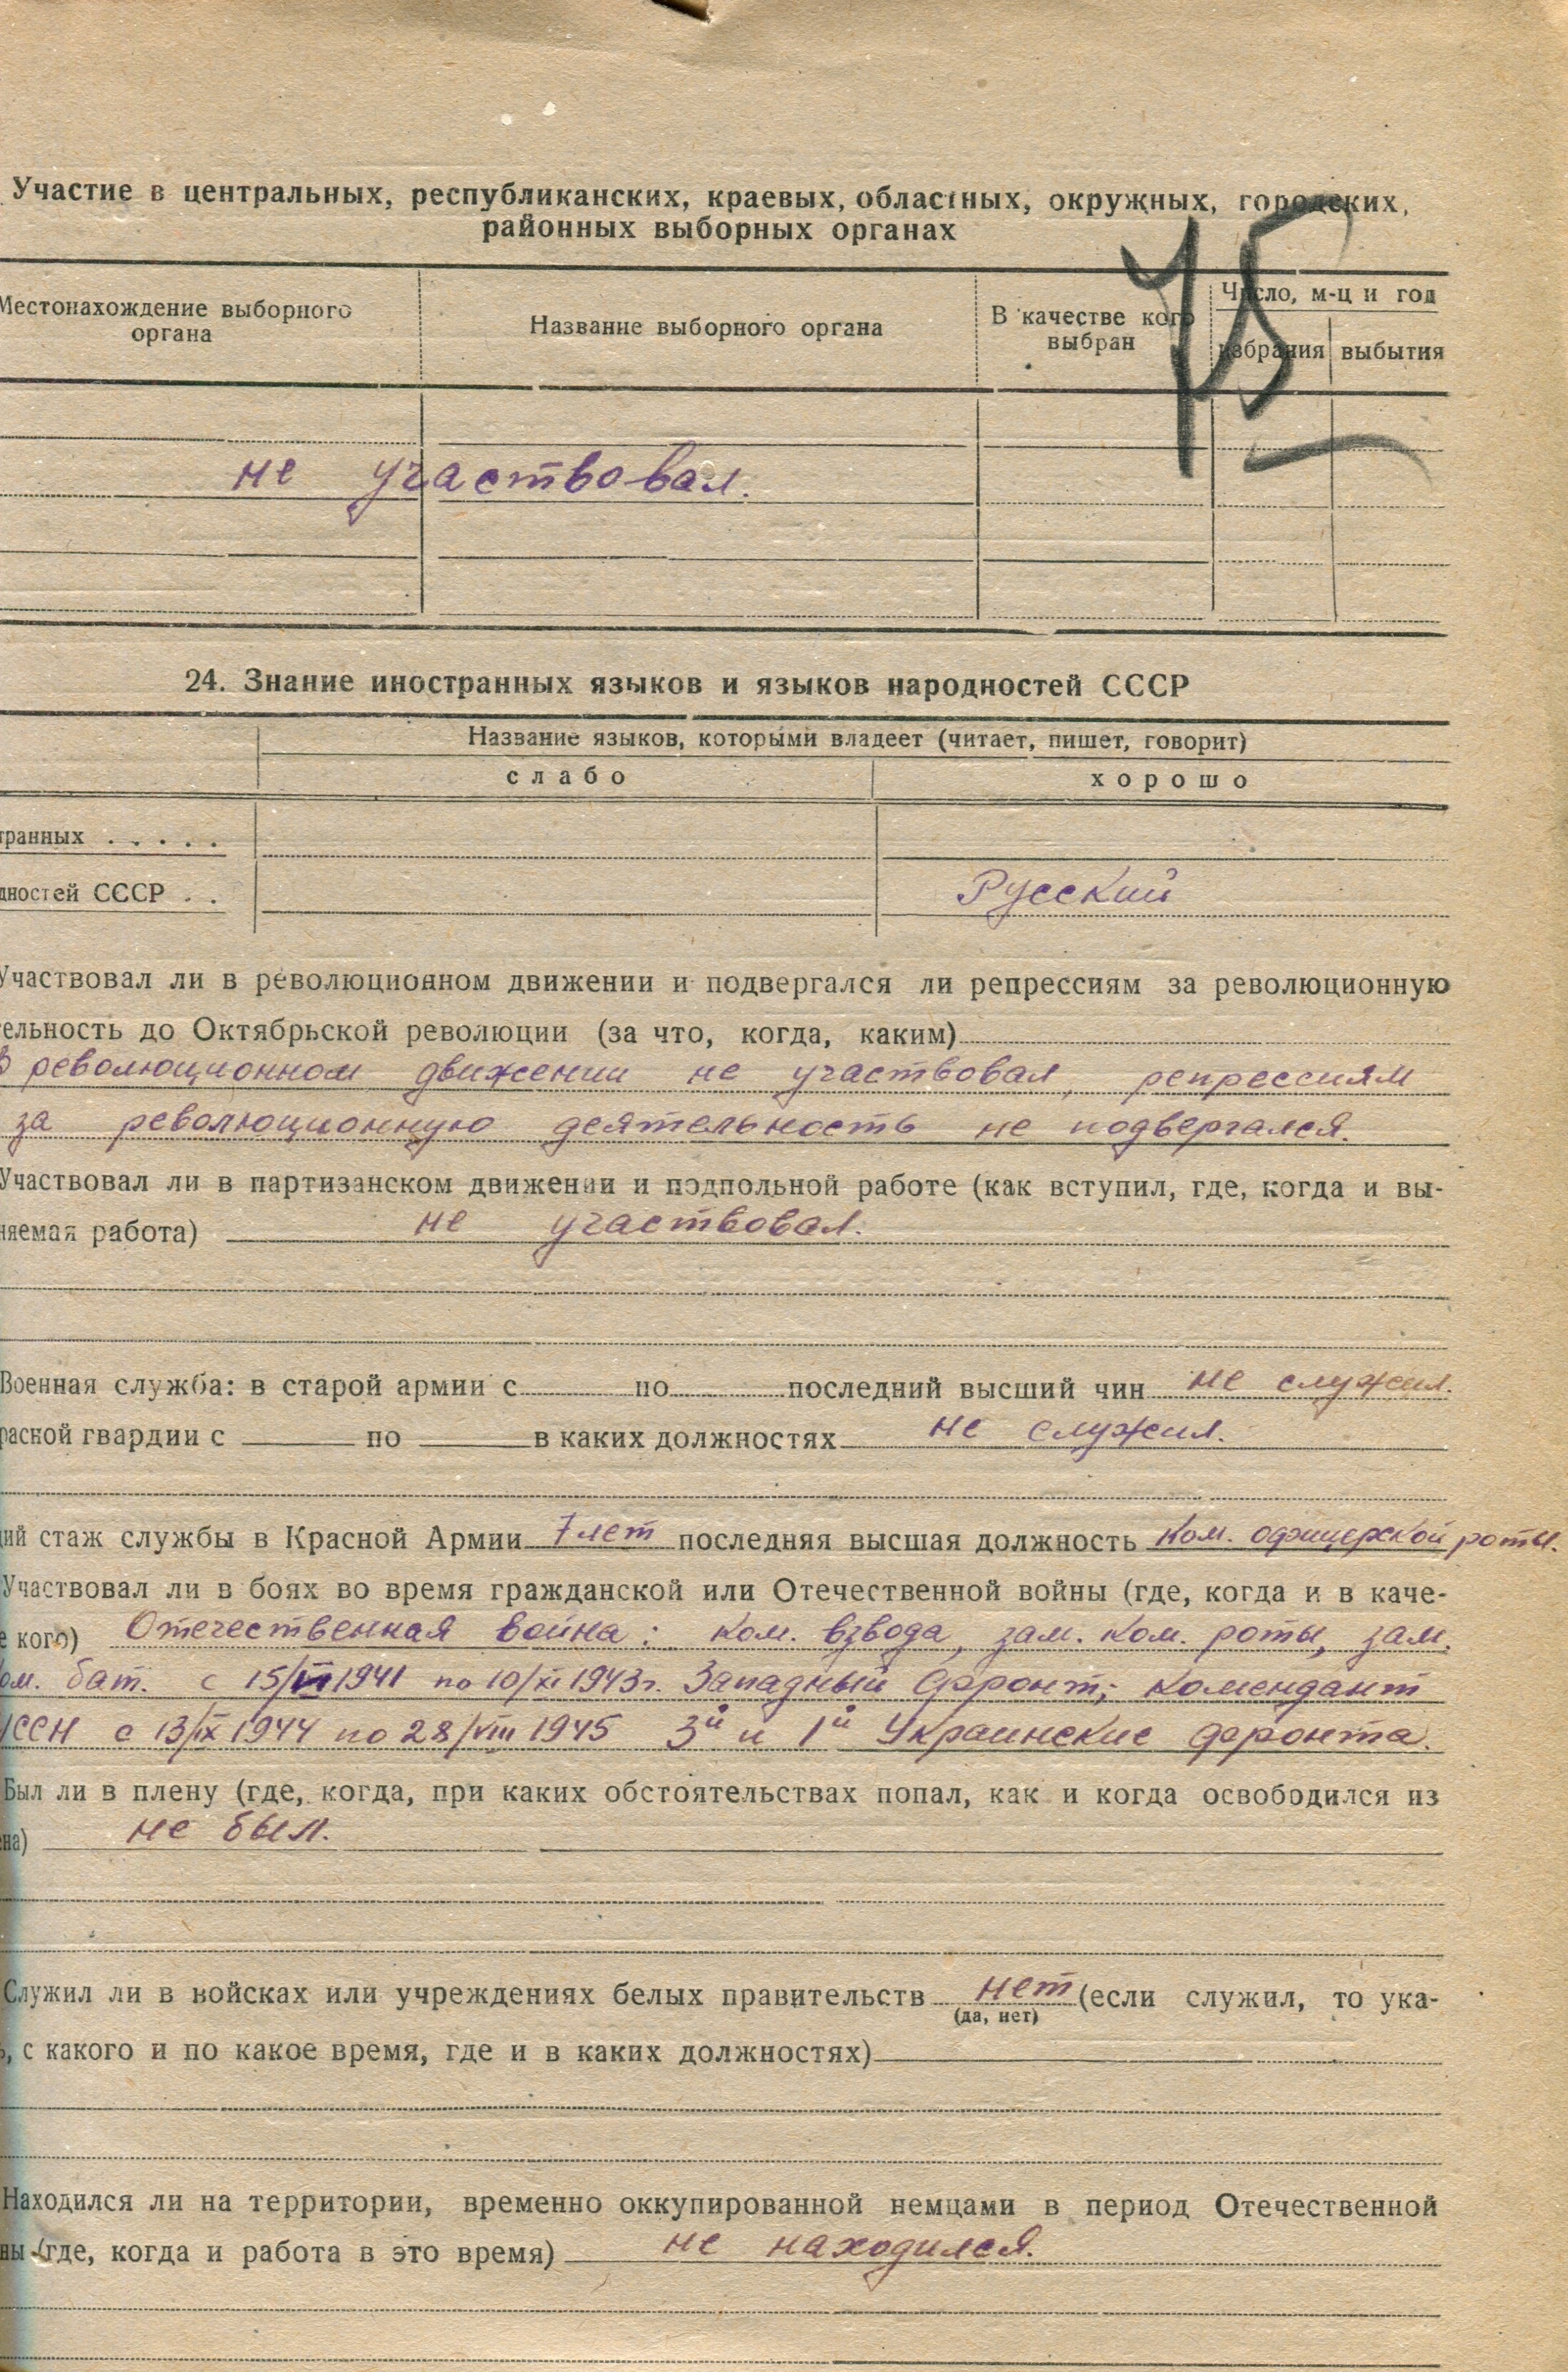 Участие в центральных, республиканских, краевых, областных, окружных, городских,
районных выборных органах
Местонахождение выборного органа
Название выборного органа
В качестве кого выбран
Число, м-ц и год
избрания
выбытия
не участвовал.
24. Знание иностранных языков и языков народностей СССР
Название языков, которыми владеет (читает, пишет, говорит)
слабо
хорошо
транных . . . . .
дностей СССР . .
Русский
Участвовал ли в революционном движении и подвергался ли репрессиям за революционную
тельность до Октябрьской революции (за что, когда, каким)
В революционном движении не участвовал, репрессиям
за революционную деятельность не подвергался.
Участвовал ли в партизанском движении и подпольной работе (как вступил, где, когда и вы-
няемая работа) не участвовал.
Военная служба: в старой армии с по последний высший чин не служил.
расной гвардии с по в каких должностях не служил.
щий стаж службы в Красной Армии 7 лет последняя высшая должность ком. офицерской роты.
Участвовал ли в боях во время гражданской или Отечественной войны (где, когда и в каче-
е кого) Отечественная война: ком. взвода, зам. ком. роты, зам.
ком. бат. с 15/ 1941 по 10/XI 1943г. Западный фронт; комендант
с 13/IX 1944 по 28/VIII 1945 3й и 1й Украинские фронта.
Был ли в плену (где, когда, при каких обстоятельствах попал, как и когда освободился из
на) не был.
Служил ли в войсках или учреждениях белых правительств нет (если служил, то ука-
(да, нет)
ь, с какого и по какое время, где и в каких должностях)
Находился ли на территории, временно оккупированной немцами в период Отечественной
ны (где, когда и работа в это время) не находился.